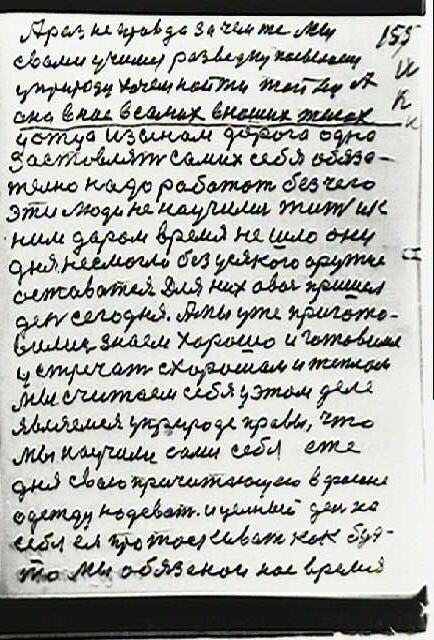 А раз неправда зачем же мы 155
свами учимся разведку
уприроду хочем найти А
она внас всамих внаших телах
и отца изсином дорога одна
Заставлять самих себя обяза-
телно надо работат без чего
эти люди не научилис жит ик
ним даром время не шло они
дня несмогли без усякого оружие
оставатся. Для них авоя пришел
ден сегодня. Амы уже пригото-
вилис, знаем хорошо и готовимся
устречат схорошим и теплом
Мы считаем себя уэтом деле
являемся уприроде правы, что
мы научили сами себя еже
дня свою причитающую в форме
одежду надеват. и целный ден на
себя ея протаскиват как буд-
то мы обязаной нас время